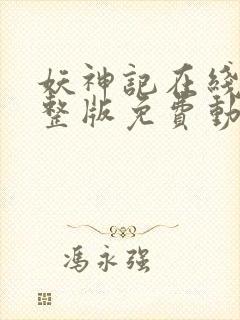 妖神記在綫
整版免費動
馮永强